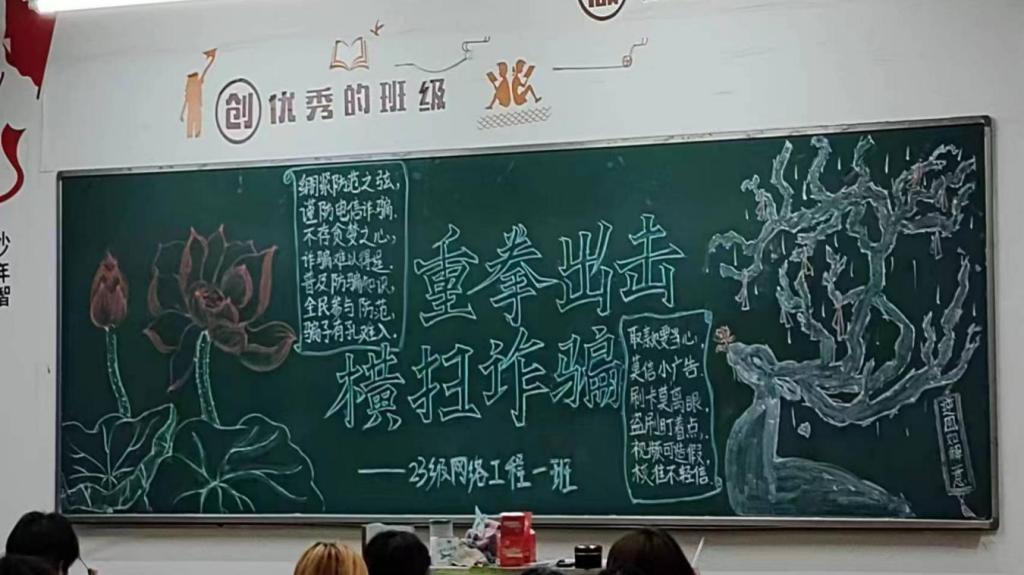 创优秀的班级
少年智
绷紧防范之弦，
谨防电信诈骗．
不存贪婪之心，
诈骗难以得逞．
普及防骗知识，
全民参与防范，
骗子有孔难入
重拳出击
横扫诈骗
——23级网络工程一班
取款要当心，
莫信小广告
刷卡莫离眼，
盗刷盯着点，
视频可造假，
核准不轻信